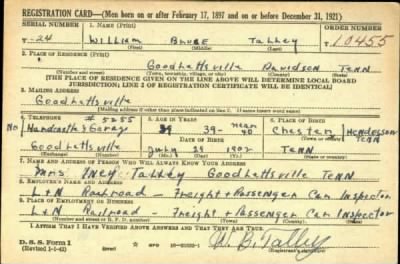 REGISTRATION CARD—(Men born on or after February 17, 1897 and on or before December 31, 1921)
SERIAL NUMBER 1. NAME (Print) ORDER NUMBER
T-24 William Bruce Talley 10455
(First) (Middle) (Last)
2. PLACE OF RESIDENCE (Print)
Goodlettsville Davidson Tenn
(Number and street) (Town, township, village, or city) (County) (State)
[THE PLACE OF RESIDENCE GIVEN ON THE LINE ABOVE WILL DETERMINE LOCAL BOARD
JURISDICTION; LINE 2 OF REGISTRATION CERTIFICATE WILL BE IDENTICAL]
3. MAILING ADDRESS
Goodlettsville
[Mailing address if other than place indicated on line 2. If same insert word same]
4. TELEPHONE 5. AGE IN YEARS 6. PLACE OF BIRTH
# 5255 39 near 40 Chester Henderson Tenn
No Garage DATE OF BIRTH (Town or county)
Goodlettsville July 29 1902 Tenn
7. NAME AND ADDRESS OF PERSON WHO WILL ALWAYS KNOW YOUR ADDRESS
Mrs Talley Goodlettsville Tenn
8. EMPLOYER'S NAME AND ADDRESS
L + N Railroad - Freight + Passenger Car Inspector
9. PLACE OF EMPLOYMENT OR BUSINESS
L + N Railroad - Freight + Passenger Car Inspector
(Number and street or R. F. D. number) (Town) (County) (State)
I AFFIRM THAT I HAVE VERIFIED ABOVE ANSWERS AND THAT THEY ARE TRUE.
D. S. S. Form 1
(Revised 1-1-42) W. B. Talley
(Registrant's signature)